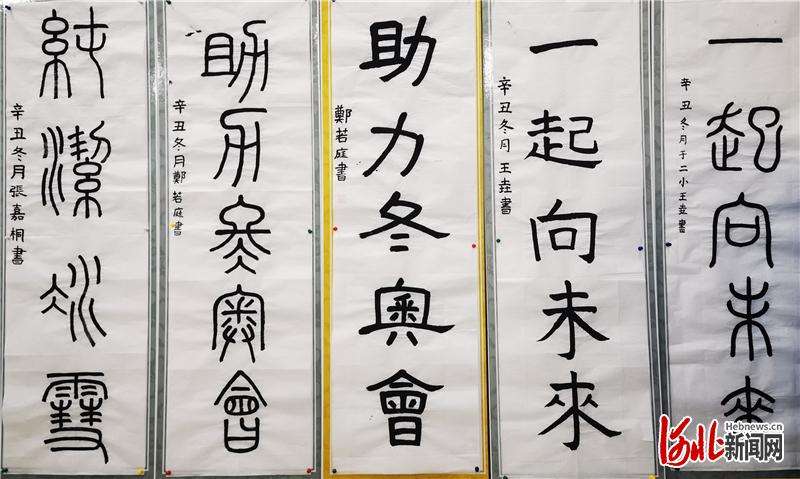 一起向未來
辛丑冬月于二小王垚書
一起向未來
辛丑冬月王垚書
助力冬奧會
鄭若庭書
助力冬奧會
辛丑冬月鄭若庭書
純潔冰雪
辛丑冬月張嘉桐書
Hebnews.cn
河北新闻网